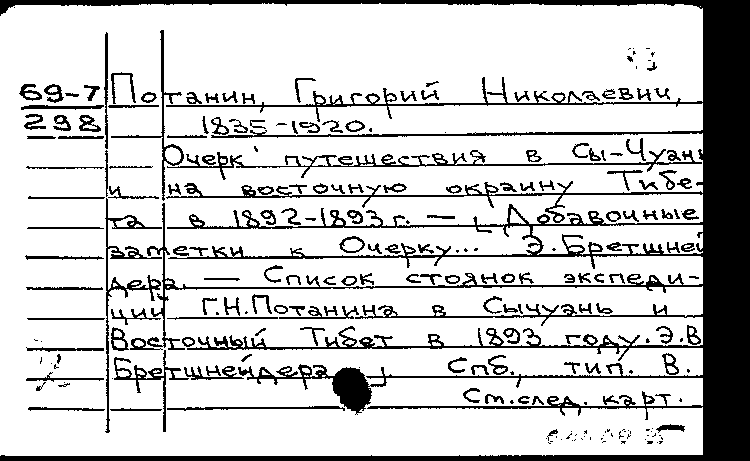 69-7 Потанин, Григорий Николаевич,
298 1835-1920.
Очерк путешествия в Сы-Чуань
и на восточную окраину Тибе-
та в 1892-1893 г. — [Добавочные
заметки к Очерку... Э.Бретшней
дера. — Список стоянок экспеди-
ций Г.Н.Потанина в Сычуань и
Восточный Тибет в 1893 году. Э.В
Бретшнейдера ] Спб., тип. В.
См.след. карт.